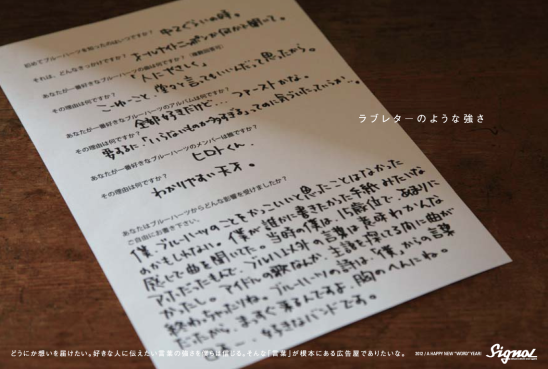 初めてブルーハーツを知ったのはいつですか？ 中２ぐらいの時。
それは、どんなきっかけですか？ オールナイトニッポンか何かで聞いて。
あなたが一番好きなブルーハーツの曲は何ですか？（複数回答可）
「人にやさしく」
その理由は何ですか？ こゆこと、堂々と言ってもいいんだって思ったから。
あなたが一番好きなブルーハーツのアルバムは何ですか？
全部好きだけど… ファーストかな。
その理由は何ですか？
要するに「いらないものが多すぎる」ってのに気づいたっていうか…。
あなたが一番好きなブルーハーツのメンバーは誰ですか？
ヒロトくん
その理由は何ですか？
わかりやすい天才。
あなたはブルーハーツからどんな影響を受けましたか？
ご自由にお書き下さい。
僕、ブルーハーツのことをかっこいいと思ったことはなかった
のかもしれない。僕が誰かに書きたかった手紙みたいな
感じで曲を聞いてた。当時の僕は、15歳位で、あまりに
アホだったもんで、アホ以外の言葉は意味わかんな
かったし。アイドルの歌なんか、主語を探してる間に曲が
終わっちゃったりね。ブルーハーツの詩は、「僕」からの言葉
だったから、まっすぐ来るんですよ、胸のへんにね。
好きなバンドです。
ラブレターのような強さ
どうにか想いを届けたい。好きな人に伝えたい言葉の強さを僕らは信じる。そんな「言葉」が根本にある広告屋でありたいな。 2012 / A HAPPY NEW "WORD" YEAR!
Signal